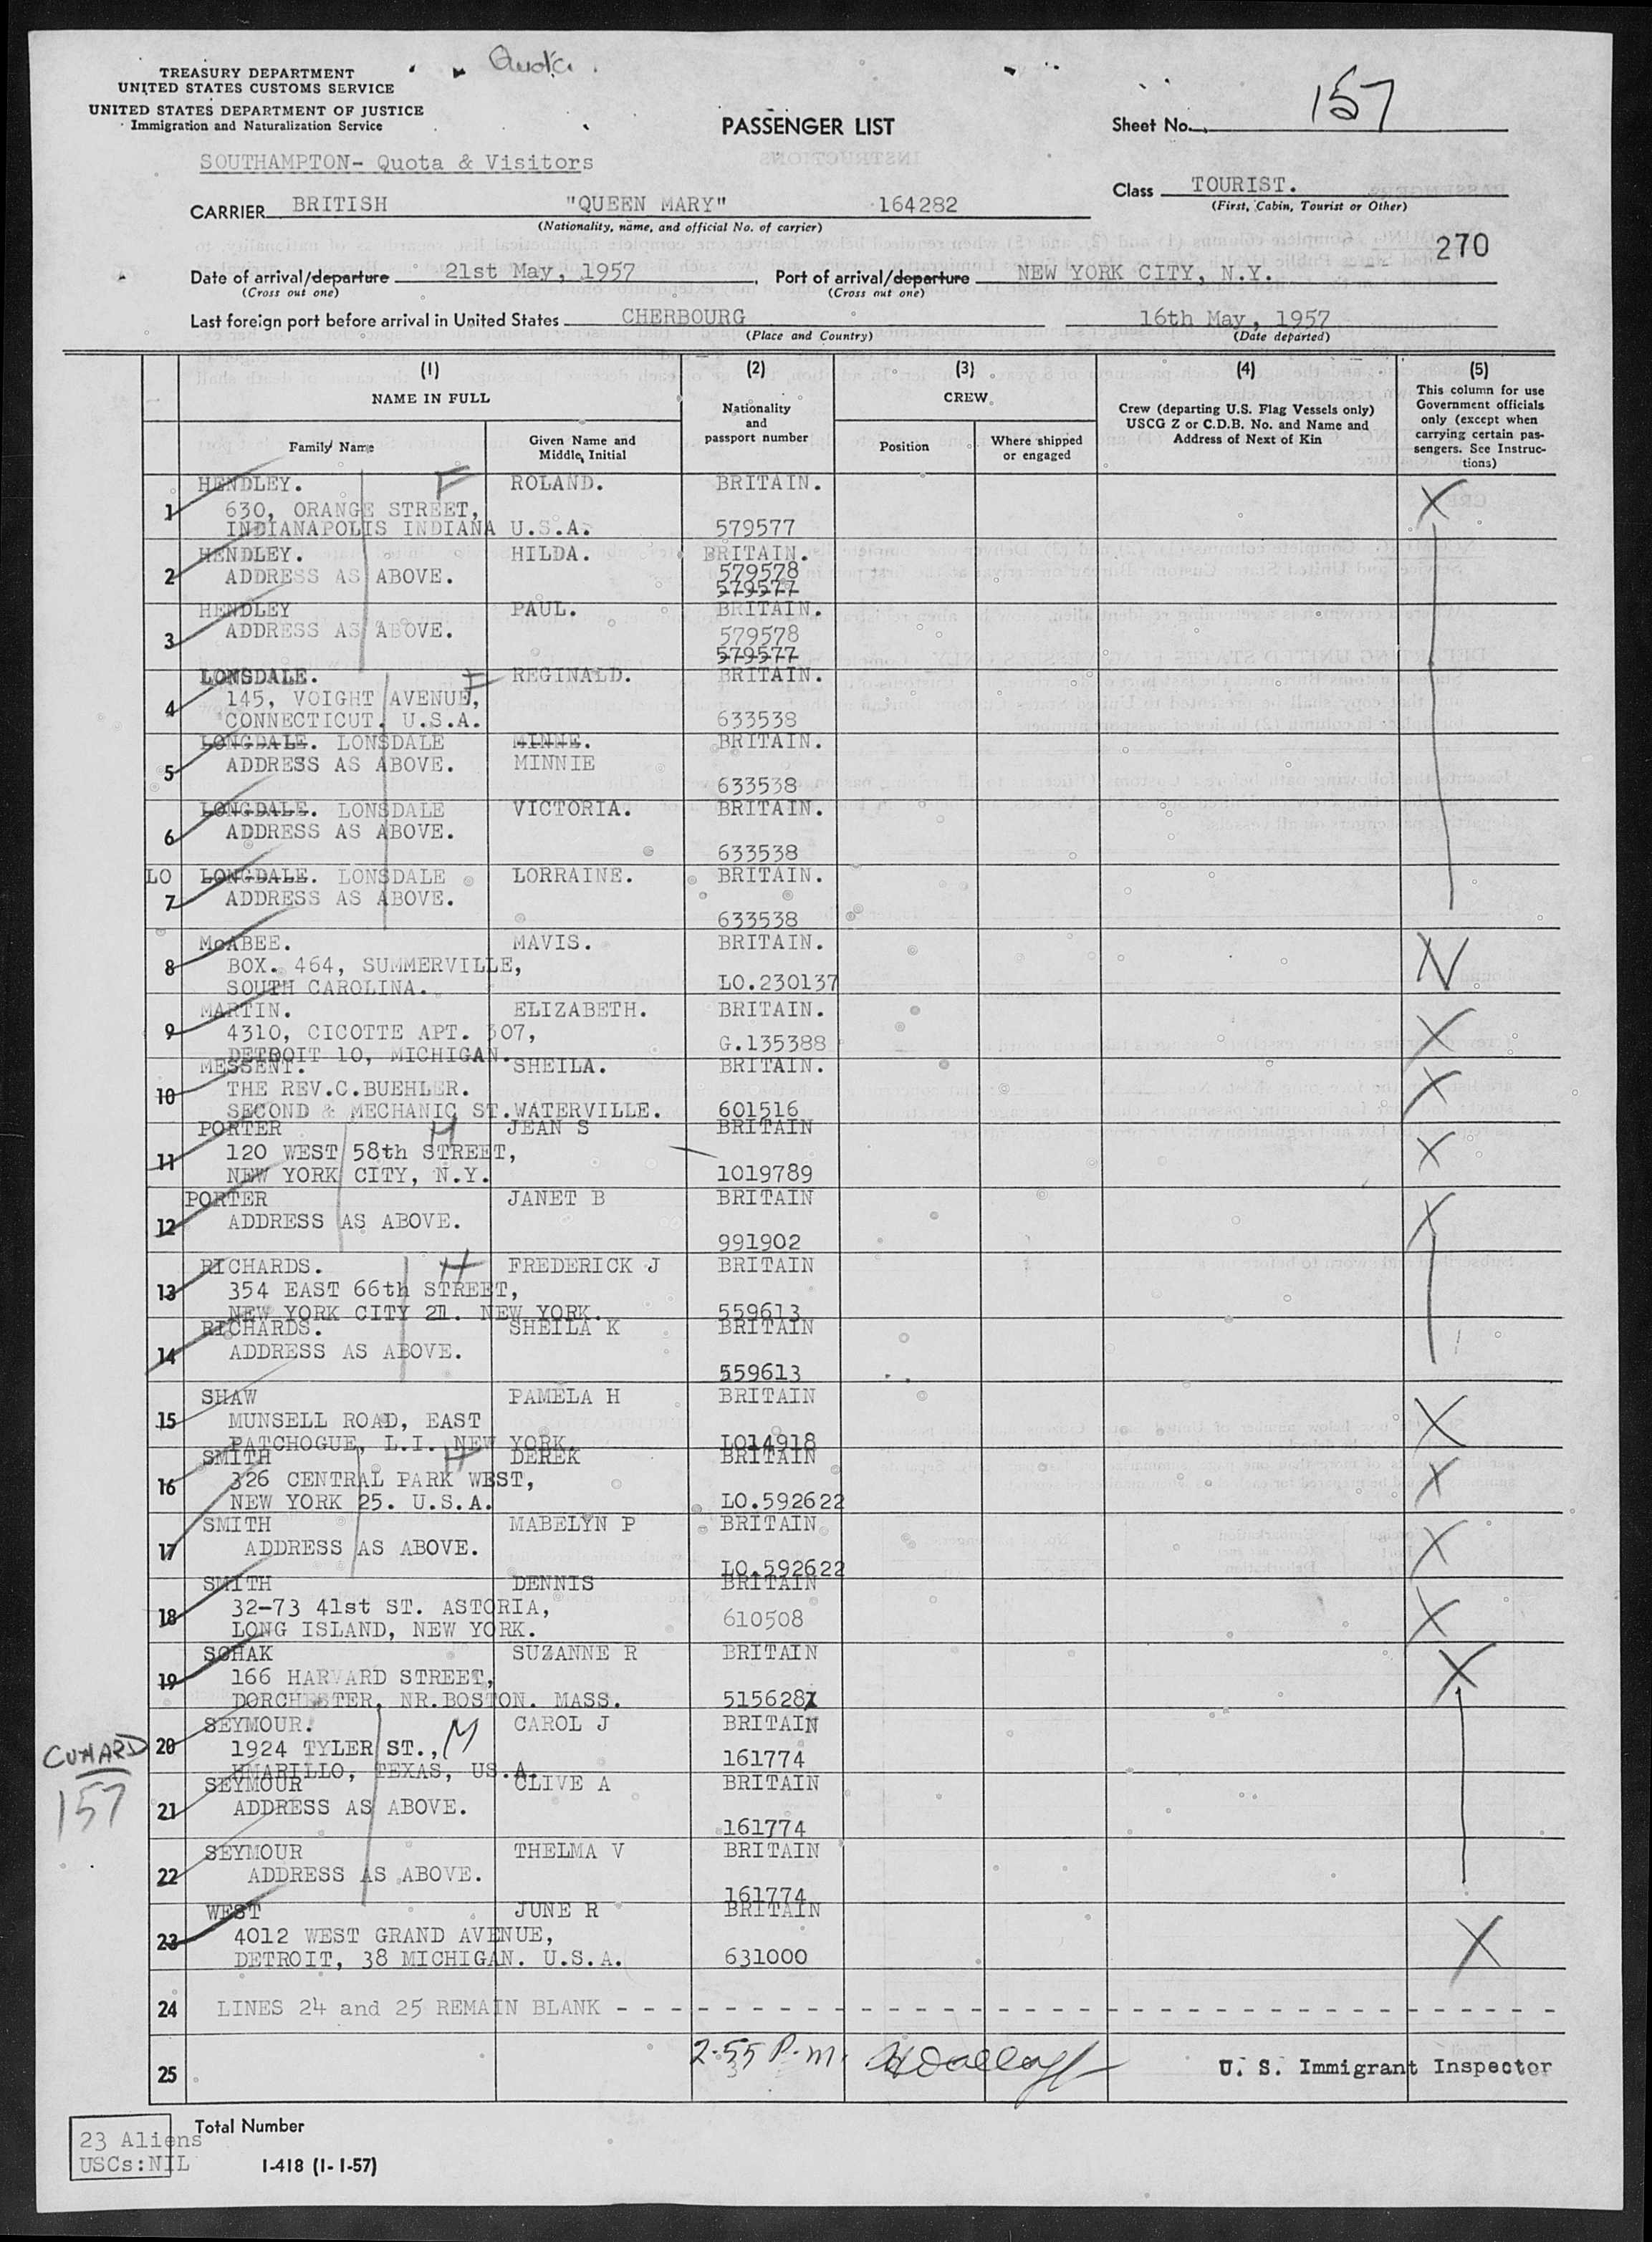 Quota.
TREASURY DEPARTMENT
UNITED STATES CUSTOMS SERVICE
UNITED STATES DEPARTMENT OF JUSTICE
Immigration and Naturalization Service
PASSENGER LIST
Sheet No. 157
SOUTHAMPTON- Quota & Visitors
Class TOURIST.
(First, Cabin, Tourist or Other)
CARRIER BRITISH "QUEEN MARY" 164282
(Nationality, name, and official No. of carrier)
270
Date of arrival/departure 21st May, 1957, Port of arrival/departure NEW YORK CITY, N.Y.
(Cross out one) (Cross out one)
Last foreign port before arrival in United States CHERBOURG 16th May, 1957
(Place and Country) (Date departed)
(1) (2) (3) (4) (5)
NAME IN FULL
Nationality and passport number
CREW
Crew (departing U.S. Flag Vessels only) USCG Z or C.D.B. No. and Name and Address of Next of Kin
This column for use Government officials only (except when carrying certain passengers. See Instructions)
Family Name Given Name and Middle Initial Position Where shipped or engaged
HENDLEY. F ROLAND. BRITAIN. X
1 630, ORANGE STREET,
INDIANAPOLIS INDIANA U.S.A. 579577
HENDLEY. HILDA. BRITAIN.
2 ADDRESS AS ABOVE. 579578
579577
HENDLEY PAUL. BRITAIN.
3 ADDRESS AS ABOVE. 579578
579577
LONSDALE. F REGINALD. BRITAIN.
4 145, VOIGHT AVENUE,
CONNECTICUT. U.S.A. 633538
LONGDALE. LONSDALE MINNE. BRITAIN.
5 ADDRESS AS ABOVE. MINNIE
633538
LONGDALE. LONSDALE VICTORIA. BRITAIN.
6 ADDRESS AS ABOVE.
633538
LO LONGDALE. LONSDALE LORRAINE. BRITAIN.
7 ADDRESS AS ABOVE.
633538
McABEE. MAVIS. BRITAIN. N
8 BOX. 464, SUMMERVILLE,
SOUTH CAROLINA. LO.230137
MARTIN. ELIZABETH. BRITAIN. X
9 4310, CICOTTE APT. 307,
DETROIT 10, MICHIGAN. G.135388
MESSENT. SHEILA. BRITAIN. X
10 THE REV.C.BUEHLER.
SECOND & MECHANIC ST.WATERVILLE. 601516
PORTER H JEAN S BRITAIN X
11 120 WEST 58th STREET,
NEW YORK CITY, N.Y. 1019789
PORTER JANET B BRITAIN X
12 ADDRESS AS ABOVE.
991902
RICHARDS. H FREDERICK J BRITAIN
13 354 EAST 66th STREET,
NEW YORK CITY 21. NEW YORK. 559613
RICHARDS. SHEILA K BRITAIN
14 ADDRESS AS ABOVE.
559613
SHAW PAMELA H BRITAIN X
15 MUNSELL ROAD, EAST
PATCHOGUE, L.I. NEW YORK. LO14918
SMITH H DEREK BRITAIN X
16 326 CENTRAL PARK WEST,
NEW YORK 25. U.S.A. LO.592622
SMITH MABELYN P BRITAIN X
17 ADDRESS AS ABOVE.
LO.592622
SMITH DENNIS BRITAIN X
18 32-73 41st ST. ASTORIA, 610508
LONG ISLAND, NEW YORK.
SOHAK SUZANNE R BRITAIN X
19 166 HARVARD STREET,
DORCHESTER, NR.BOSTON. MASS. 515628
SEYMOUR. M CAROL J BRITAIN
CUNARD 20 1924 TYLER ST., 161774
AMARILLO, TEXAS, US.A.
SEYMOUR CLIVE A BRITAIN
157 21 ADDRESS AS ABOVE.
161774
SEYMOUR THELMA V BRITAIN
22 ADDRESS AS ABOVE.
161774
WEST JUNE R BRITAIN X
23 4012 WEST GRAND AVENUE,
DETROIT, 38 MICHIGAN. U.S.A. 631000
24 LINES 24 and 25 REMAIN BLANK - - - - - - - - - -
2.55 P.m.
25 U. S. Immigrant Inspector
Total Number
23 Aliens
USCs:NIL
I-418 (1-1-57)